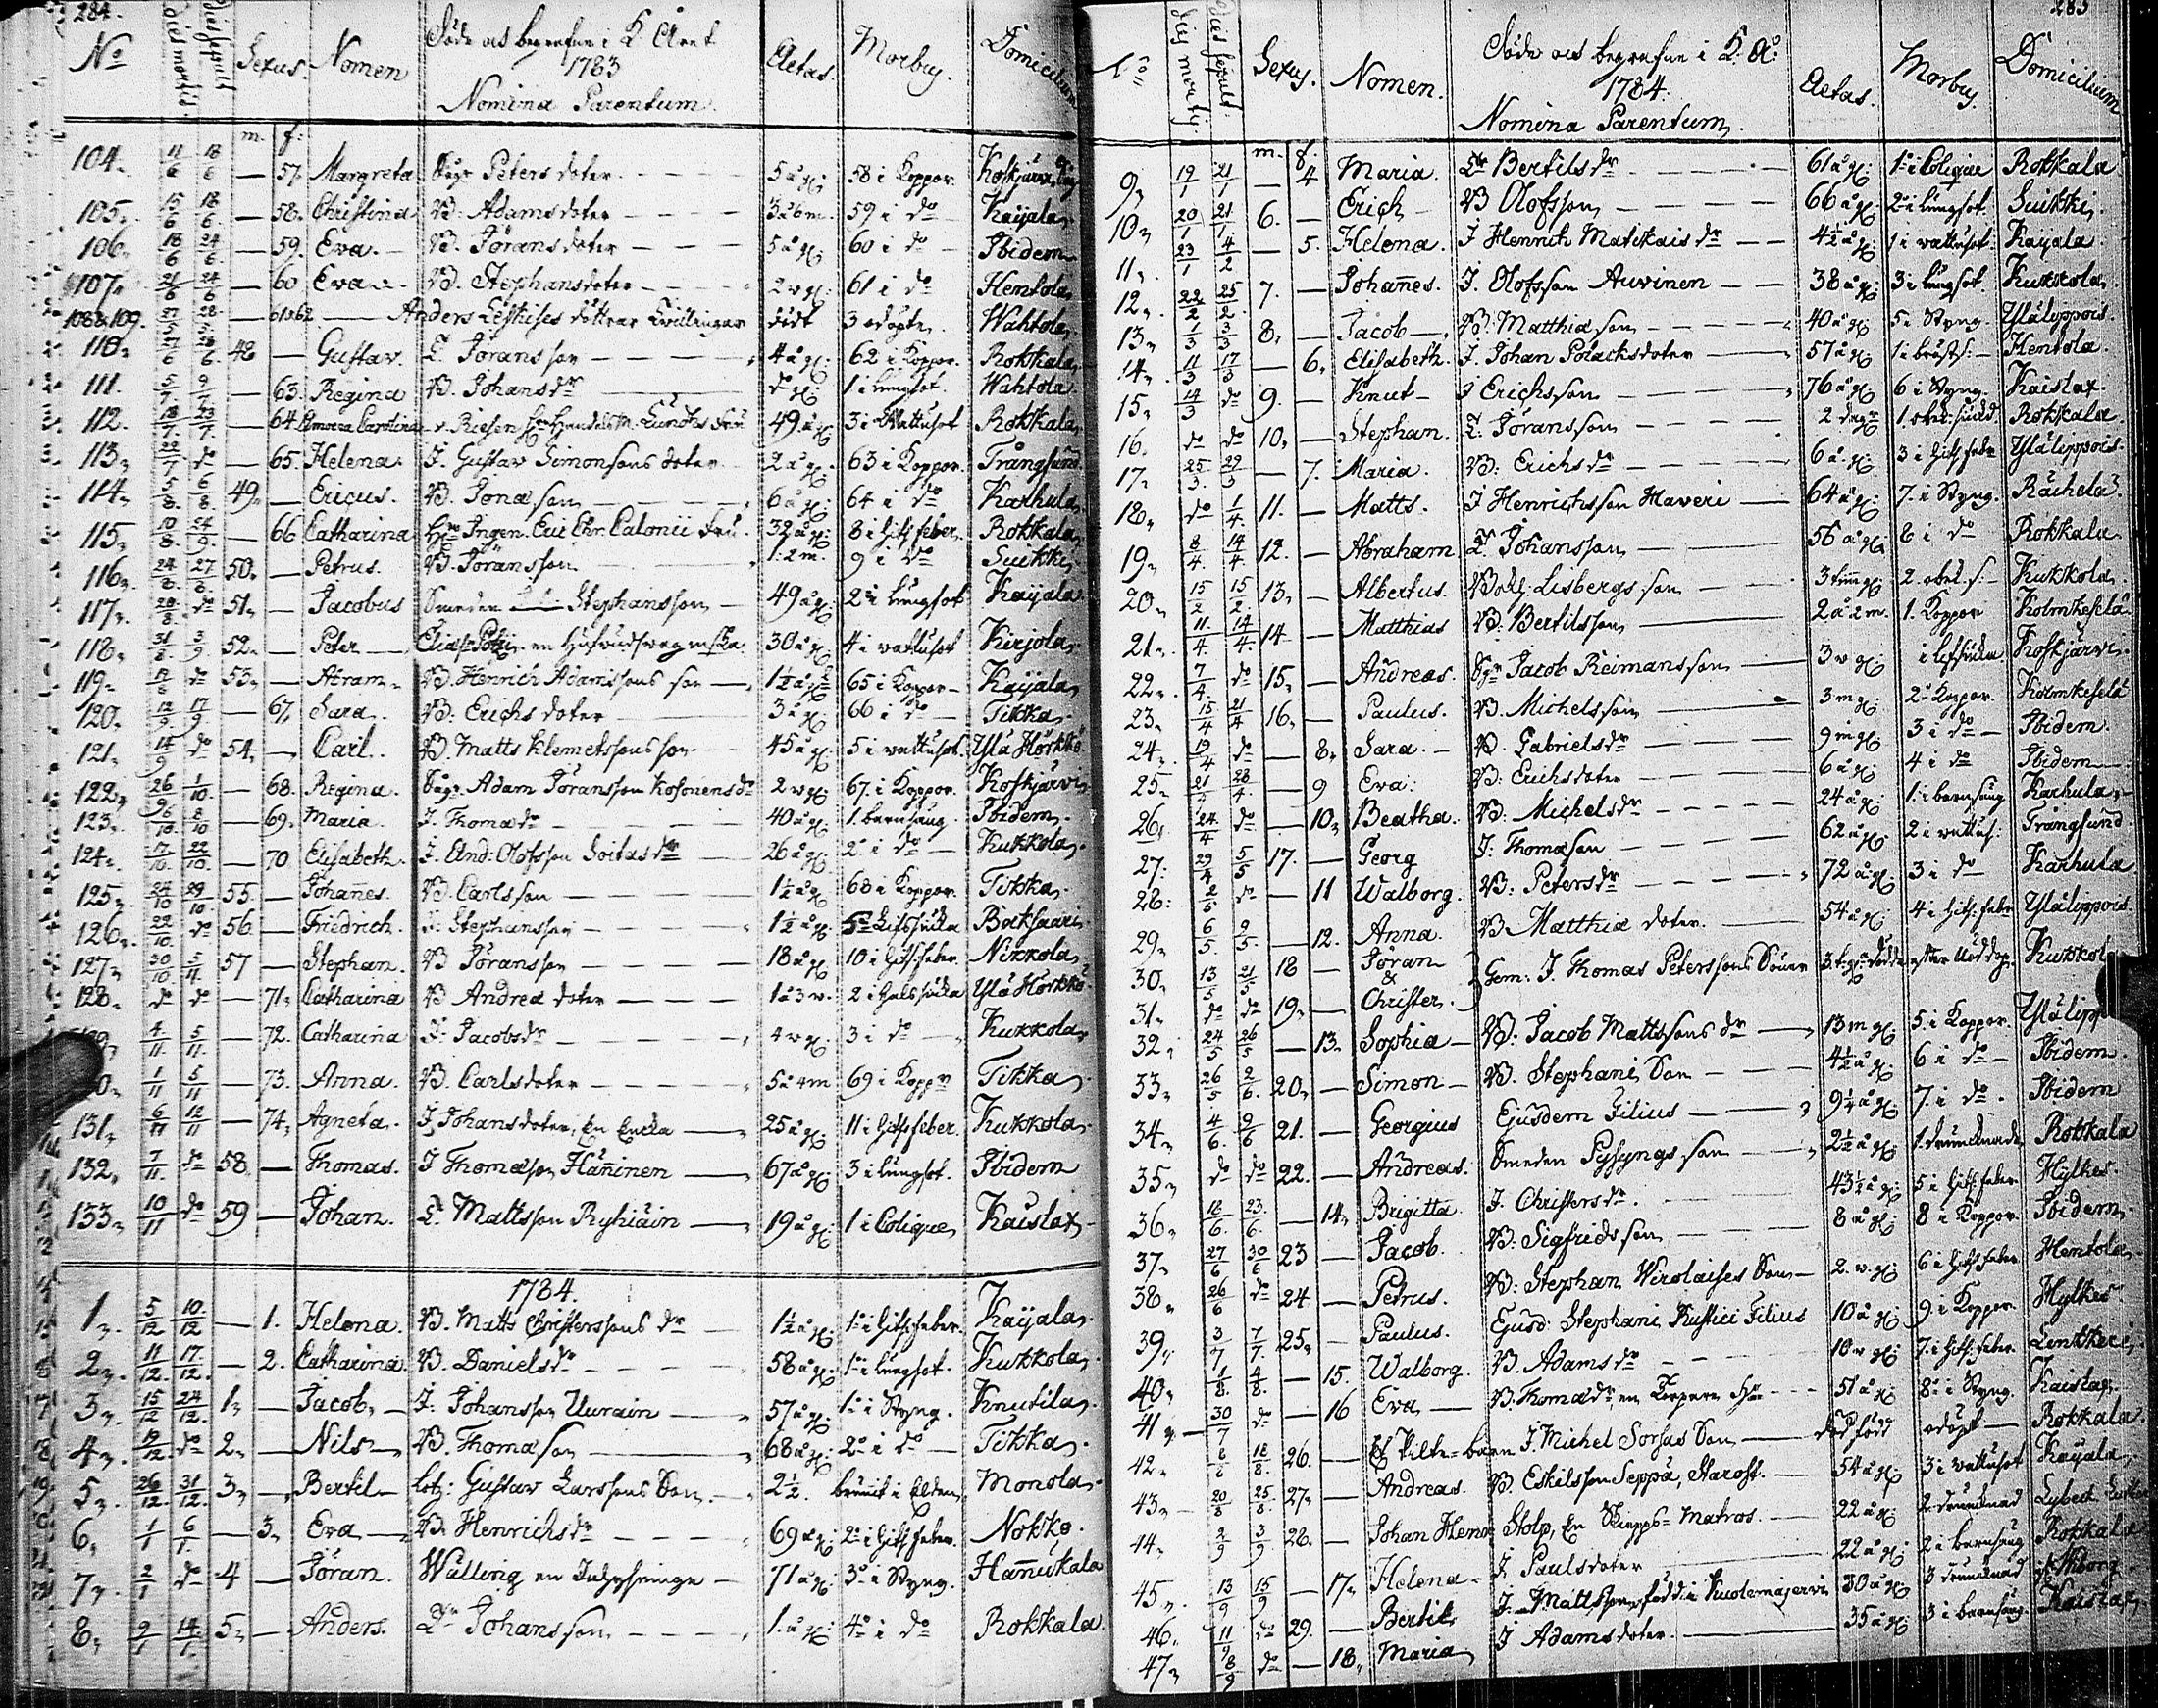 284.
No Dies mortis Dies sepult Sexus. Nomen Döde och begrafne i K Året 1783 Nomina Parentum. Aetas. Morbus. Domicilium
m. f:
104. 11/6 18/6 — 57. Margreta Peters doter 5 å gl: 58 i Koppor. Koskjärvi
105. 15/6 18/6 — 58. Christina B: Adams doter 3å6m. 59 i do Kaijala
106. 18/6 24/6 — 59. Eva. B. Jörans doter 5 å gl: 60 i do Ibidem
107. 21/6 24/6 — 60 Eva B. Stephansdoter 2 w gl: 61 i do Hentola
108&109. — 61&62 Anders döttrar Twillingar dödf 3 odöpte Wahtola
110. 27/6 48 — Gustav. L. Jöransson 4 å gl: 62 i Koppor. Rokkala
111. 5/7 9/7 — 63. Regina B. Johans dr do gl: 1 i lungsot. Wahtola
112. 18/7 23/7 — 64 Carolina v. Riesen 49 å gl: 3 i Wattusot Rokkala
113. 22/7 do — 65. Helena. I. Gustav Simonsons doter 2 å gl: 63 i Koppor. Trångsund
114. 5/8 6/8 49. — Ericus. B. Jonæ son 6 å gl: 64 i do Karhula
115. 10/8 24/9 — 66 Catharina Hr Ingen. Calonii Fru. 32 å gl: 8 i Hits feber. Rokkala
116. 24/8 27/8 50. — Petrus. B. Jöransson 1. 2 m. 9 i do Suikki
117. 28/8 do 51. — Jacobus Smeden Stephansson 49 å gl: 2 i lungsot Kaijala
118. 31/8 3/9 52. — Peter 30 å gl: 4 i wattusot Kirjola
119. do 53. — Abram B. Henrich Adamssons son 1½ å gl: 65 i Koppor Kaijala
120. 12/9 17/9 — 67. Sara. B: Erichs doter 3 å gl: 66 i do Tikka
121. 14/9 do 54. — Carl. B. Matts Klemetssons son 45 å gl: 5 i wattusot. Ylä Hörkkö
122. 26/9 1/10 — 68. Regina. Adam Jöransson Kosonens dr 2 w gl: 67. i Koppor. Koskjärvi
123. 8/10 — 69. Maria. I. Thomæ dr 40 å gl: 1. barnsäng. Ibidem
124. 17/10 22/10 — 70 Elisabeth. I. And: Olofsson Soitas dr 26 å gl: 2 i do Kukkola
125. 24/10 29/10 55. — Johannes. B. Carlsson 1½ å gl: 68 i Koppor. Tikka
126. 22/10 do 56 — Friedrich. I. Stephansson 1½ å gl: Boksaari
127. 30/10 5/11 57 — Stephan. B Jöransson 18 å gl: 10 i Hits: feber. Nikkola
128. do do — 71. Catharina B Andreæ doter 1 å 3 w. 2 i Halssjuka Ylä Hörkkö
4/11 5/11 — 72. Catharina I. Jacobs dr 4 w gl: 3 i do Kukkola
1/11 5/11 — 73. Anna. B. Carlsdoter 5 å 4m 69 i Koppr Tikka
131. 6/11 12/11 — 74. Agneta. I. Johansdoter, En Enka 25 å gl: 11 i Hits feber. Kukkola
132. 7/11 do 58. — Thomas. I Thomæson Hänninen 67 å gl: 3 i lungsot. Ibidem
133. 10/11 do 59 — Johan. L. Mattsson Ryhiäin 19 å gl: 1 i Colique Kaislax
1784.
1. 5/12 10/12 — 1. Helena. B. Matts Christerssons dr 1½ å gl: 1 i Hits feber. Kaijala
2. 11/12 17/12 — 2. Catharina. B. Daniels dr 58 å gl: 1 i lungsot. Kukkola
3. 15/12 24/12 1. — Jacob. I: Johansson Uurain 57 å gl: 1 i Styng. Knutila
4. 19/12 do 2. — Nils B. Thomæ son 68 å gl: 2 i do Tikka
5. 26/12 31/12 3. — Bertil Gustav Larssons Son 2½. bränt i Elden Monola
6. 1/1 6/1 — 3. Eva B. Henrichs dr 69 å gl: 2 i Hits feber. Nokko.
7. 2/1 do 4 — Jöran. Wälling en Inhyshinge 71 å gl: 3 i Styng. Hannukala
8. 9/1 14/1 5. — Anders. Johansson 1. å gl: 4 i do Rokkala
285
No Dies mortis Dies sepult: Sexus. Nomen. Döde och begrafne i K. Åo: 1784. Nomina Parentum. Aetas. Morbus. Domicilium
m. f.
9. 19/1 21/1 — 4 Maria. Bertils dr 61 å gl: 1 i Colique Rokkala
10. 20/1 21/1 6. — Erich B Olofsson 66 å gl: 2 i lungsot. Suikki
11. 23/1 4/2 — 5. Helena. I Henrich Matikais dr 4½ å gl: 1 i wattusot. Kayala
12. 22/2 25/2 7. — Johannes. I. Olofsson Auvinen 38 å gl: 3 i lungsot Kukkola
13. 1/3 3/3 8. — Jacob B: Matthiæ son 40 å gl: 5 i Styng. Yläleppois
14. 11/3 17/3 — 6. Elisabeth. I. Johan Polacksdoter 57 å gl: 1 i bröst s: Hentola
15. 14/3 do 9. — Knut I Erichsson 76 å gl: 6 i Styng. Kaislax.
16. do do 10. — Stephan. L. Jöransson 2 dagr Rokkala
17. 25/3 29/3 — 7. Maria. B: Erichs dr 6 å gl: 3 i Hits febr Yläleppois
18. do 1/4 11. — Matts. I Henrichsson Haveri 64 å gl: 7. i Styng. Räihelä
19. 8/4 14/4 12. — Abraham L. Johansson 56 å gl: 8 i do Rokkala
20. 15/2 15/2 13. — Albertus. Lisbergs son 3 tim gl: Kukkola
21. 11/4 14/4 14 — Matthias B. Bertilsson 2 å 2 m. 1. Koppor Kolmikesälä
22. 7/4 do 15. — Andreas. Jacob Reimans son 3 w gl: Koskjärvi
23. 15/4 21/4 16. — Paulus. B. Michelsson 3 m gl: 2 Koppor. Kolmikesälä
24. 19/4 do — 8. Sara. B. Gabriels dr 9 m gl: 3 i do Ibidem.
25. 21/4 28/4 — 9 Eva. B: Erichsdoter 6 å gl: 4 i do Ibidem
26. 24/4 do — 10. Beatha. B: Michels dr 24 å gl: 1. i barnsäng Karhula
27. 29/4 5/5 17. — Georg I: Thomæson 62 å gl: 2 i wattus: Trångsund
28. 2/5 do — 11 Walborg. B: Peters dr 72 å gl: 3 i do Karhula
29. 6/5 9/5 — 12. Anna. B Matthiæ doter. 54 å gl: 4 i Hits: febr Yläleppois.
30. 13/5 21/5 18 — Jöran & Gem: I. Thomas Peterssons Söner Kukkola
31. do do 19. — Christer.
32. 24/5 26/5 — 13. Sophia B. Jacob Mattssons dr 13 m gl: 5 i Koppor. Yläl
33. 26/5 2/6 20. — Simon B. Stephani Son 4½ å gl: 6 i do Ibidem.
34. 4/6 9/6 21. — Georgius Ejusdem Filius 9¼ å gl: 7. i do Ibidem
35. do do 22. — Andreas. Smeden son 2½ å gl: 1. drunknade Rokkala
36. 18/6 23/6 — 14. Brigitta I. Christers dr. 43½ å gl: 5 i Hits feber. Hylkes.
37. 27/6 30/6 23 — Jacob. B: Sigfrids son 8 å gl: 8 i Koppor. Ibidem
38. 26/6 do 24 — Petrus. B: Stephan Wirolaises Son 2. w gl: 6 i Hits feber Hentola
39. 3/7 7/7 25. — Paulus. Ejusd: Stephani Rustici Filius 10 å gl: 9 i Koppor. Hylkes
40. 1/8 4/8 — 15. Walborg. B. Adams dr 10 w gl: 7. i Hits: feber.
41. 30/7 do — 16 Eva B. Thomæ dr 51 å gl: 8 i Styng. Kaislax
42. 26. — Et Pilte=barn I. Michel Sorsas Son död född odöpt Rokkala
43. 20/8 25/8 27. — Andreas. B. Eskilsson Seppä, Starost. 54 å gl: 3 i wattusot Kayala
44. 2/9 3/9 28. — Johan Henr Stolp, En Skepps=Matros. 22 å gl: 2. drunknad Lybeck
45. 13/9 15/9 — 17. Helena I. Paulsdoter 22 å gl: 2 i barnsäng Rokkala
46. 11/9 do 29. — Bertil I. Mattsson född i Kuolemajervi 30 å gl: 3 drunknad
47. 8/9 do — 18. Maria I Adamsdoter. 35 å gl: 3 i barnsäng. Kaislax